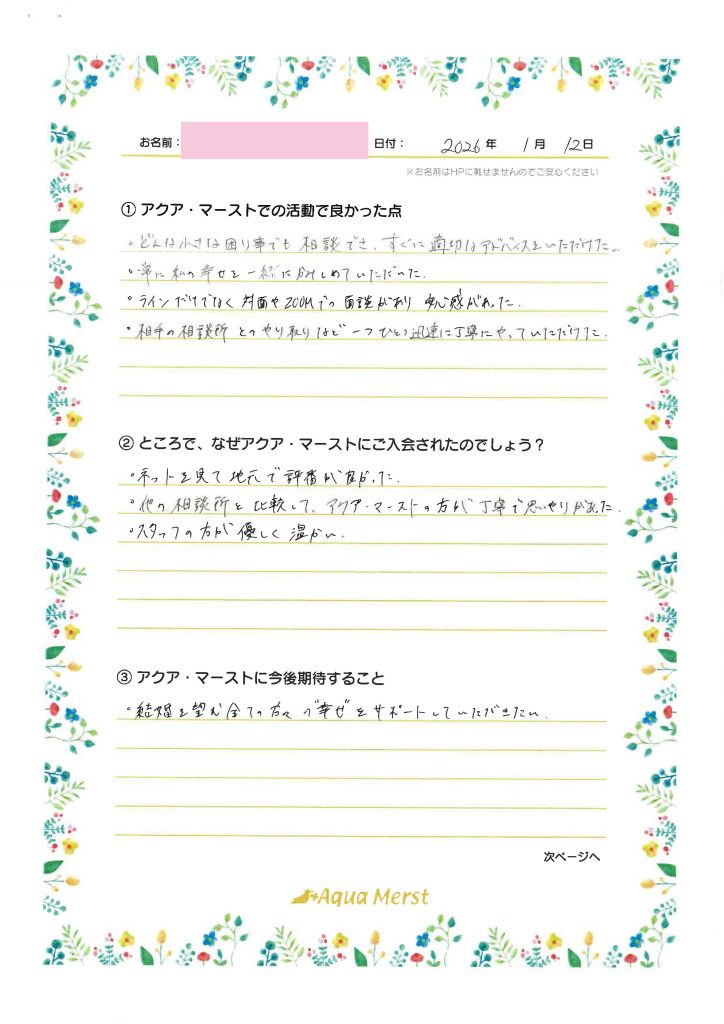 お名前： 日付： 2026年 1月 12日
※お名前はHPに載せませんのでご安心ください
① アクア・マーストでの活動で良かった点
・どんな小さな困り事でも相談でき、すぐに適切なアドバイスをいただけた。
・常に私の幸せを一緒に歩しめていただいた.
・ラインだけでなく対面やZOOMでの面談があり安心感があった.
・相手の相談所とのやり取りなど一つひとつ迅速に丁寧にやっていただけた.
② ところで、なぜアクア・マーストにご入会されたのでしょう？
・ネットを見て地元で評価が良かった.
・他の相談所と比較して、アクア・マーストの方が丁寧で思いやりがあった.
・スタッフの方が優しく温かい.
③ アクア・マーストに今後期待すること
・結婚を望む全ての方々の幸せをサポートしていただきたい.
次ページへ
Aqua Merst